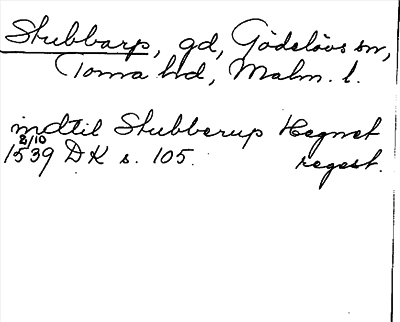 Stubbarp, gd, Gödelövs sn,
Torna hd, Malm. l.
indtil Stubberup Hegnet
8/10
1539 DK s. 105. regest.